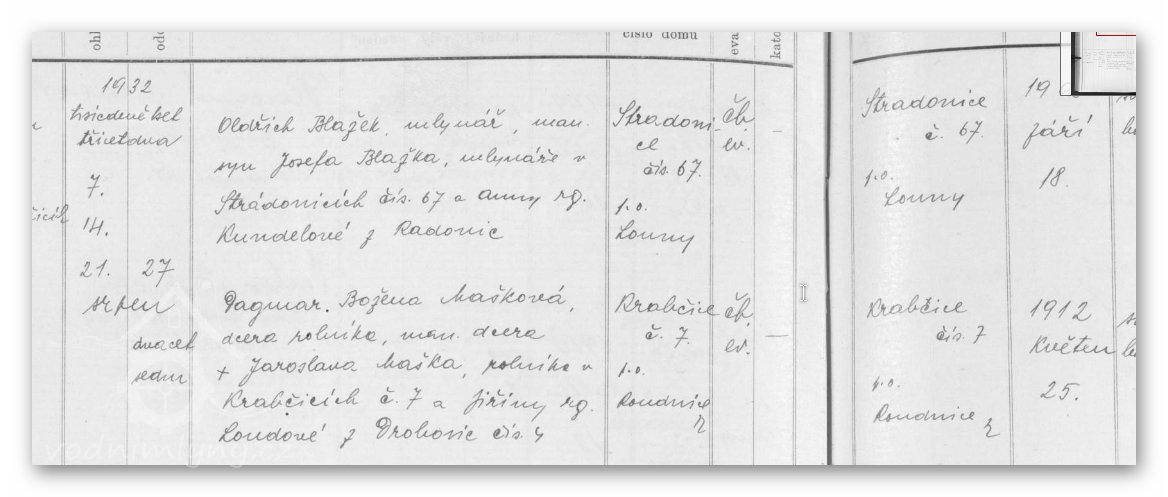 ohl
odd
číslo domu
eva
kato
1932
tisícdevětset
třicetdva
7.
14.
21. 27
srpen
dvacet
sedm
Oldřich Blažek, mlynář, man.
syn Josefa Blažka, mlynáře v
Stradonicích čís. 67 a Anny rz.
Kundelové z Radonic
Stradoni-
ce
čís. 67.
p.o.
Louny
čb.
ev.
—
Dagmar. Božena Mašková,
dcera rolníka, man. dcera
+ Jaroslava Maška, rolníka v
Krabčicích č. 7 a Jiřiny rz.
Loudové z Drohonic čís. 4
Krabčice
č. 7.
p.o.
Roudnice
čb.
ev.
—
Stradonice
č. 67.
p.o.
Louny
září
18.
Krabčice
čís. 7
p.o.
Roudnice
1912
Květen
25.
vodnimlyny.cz